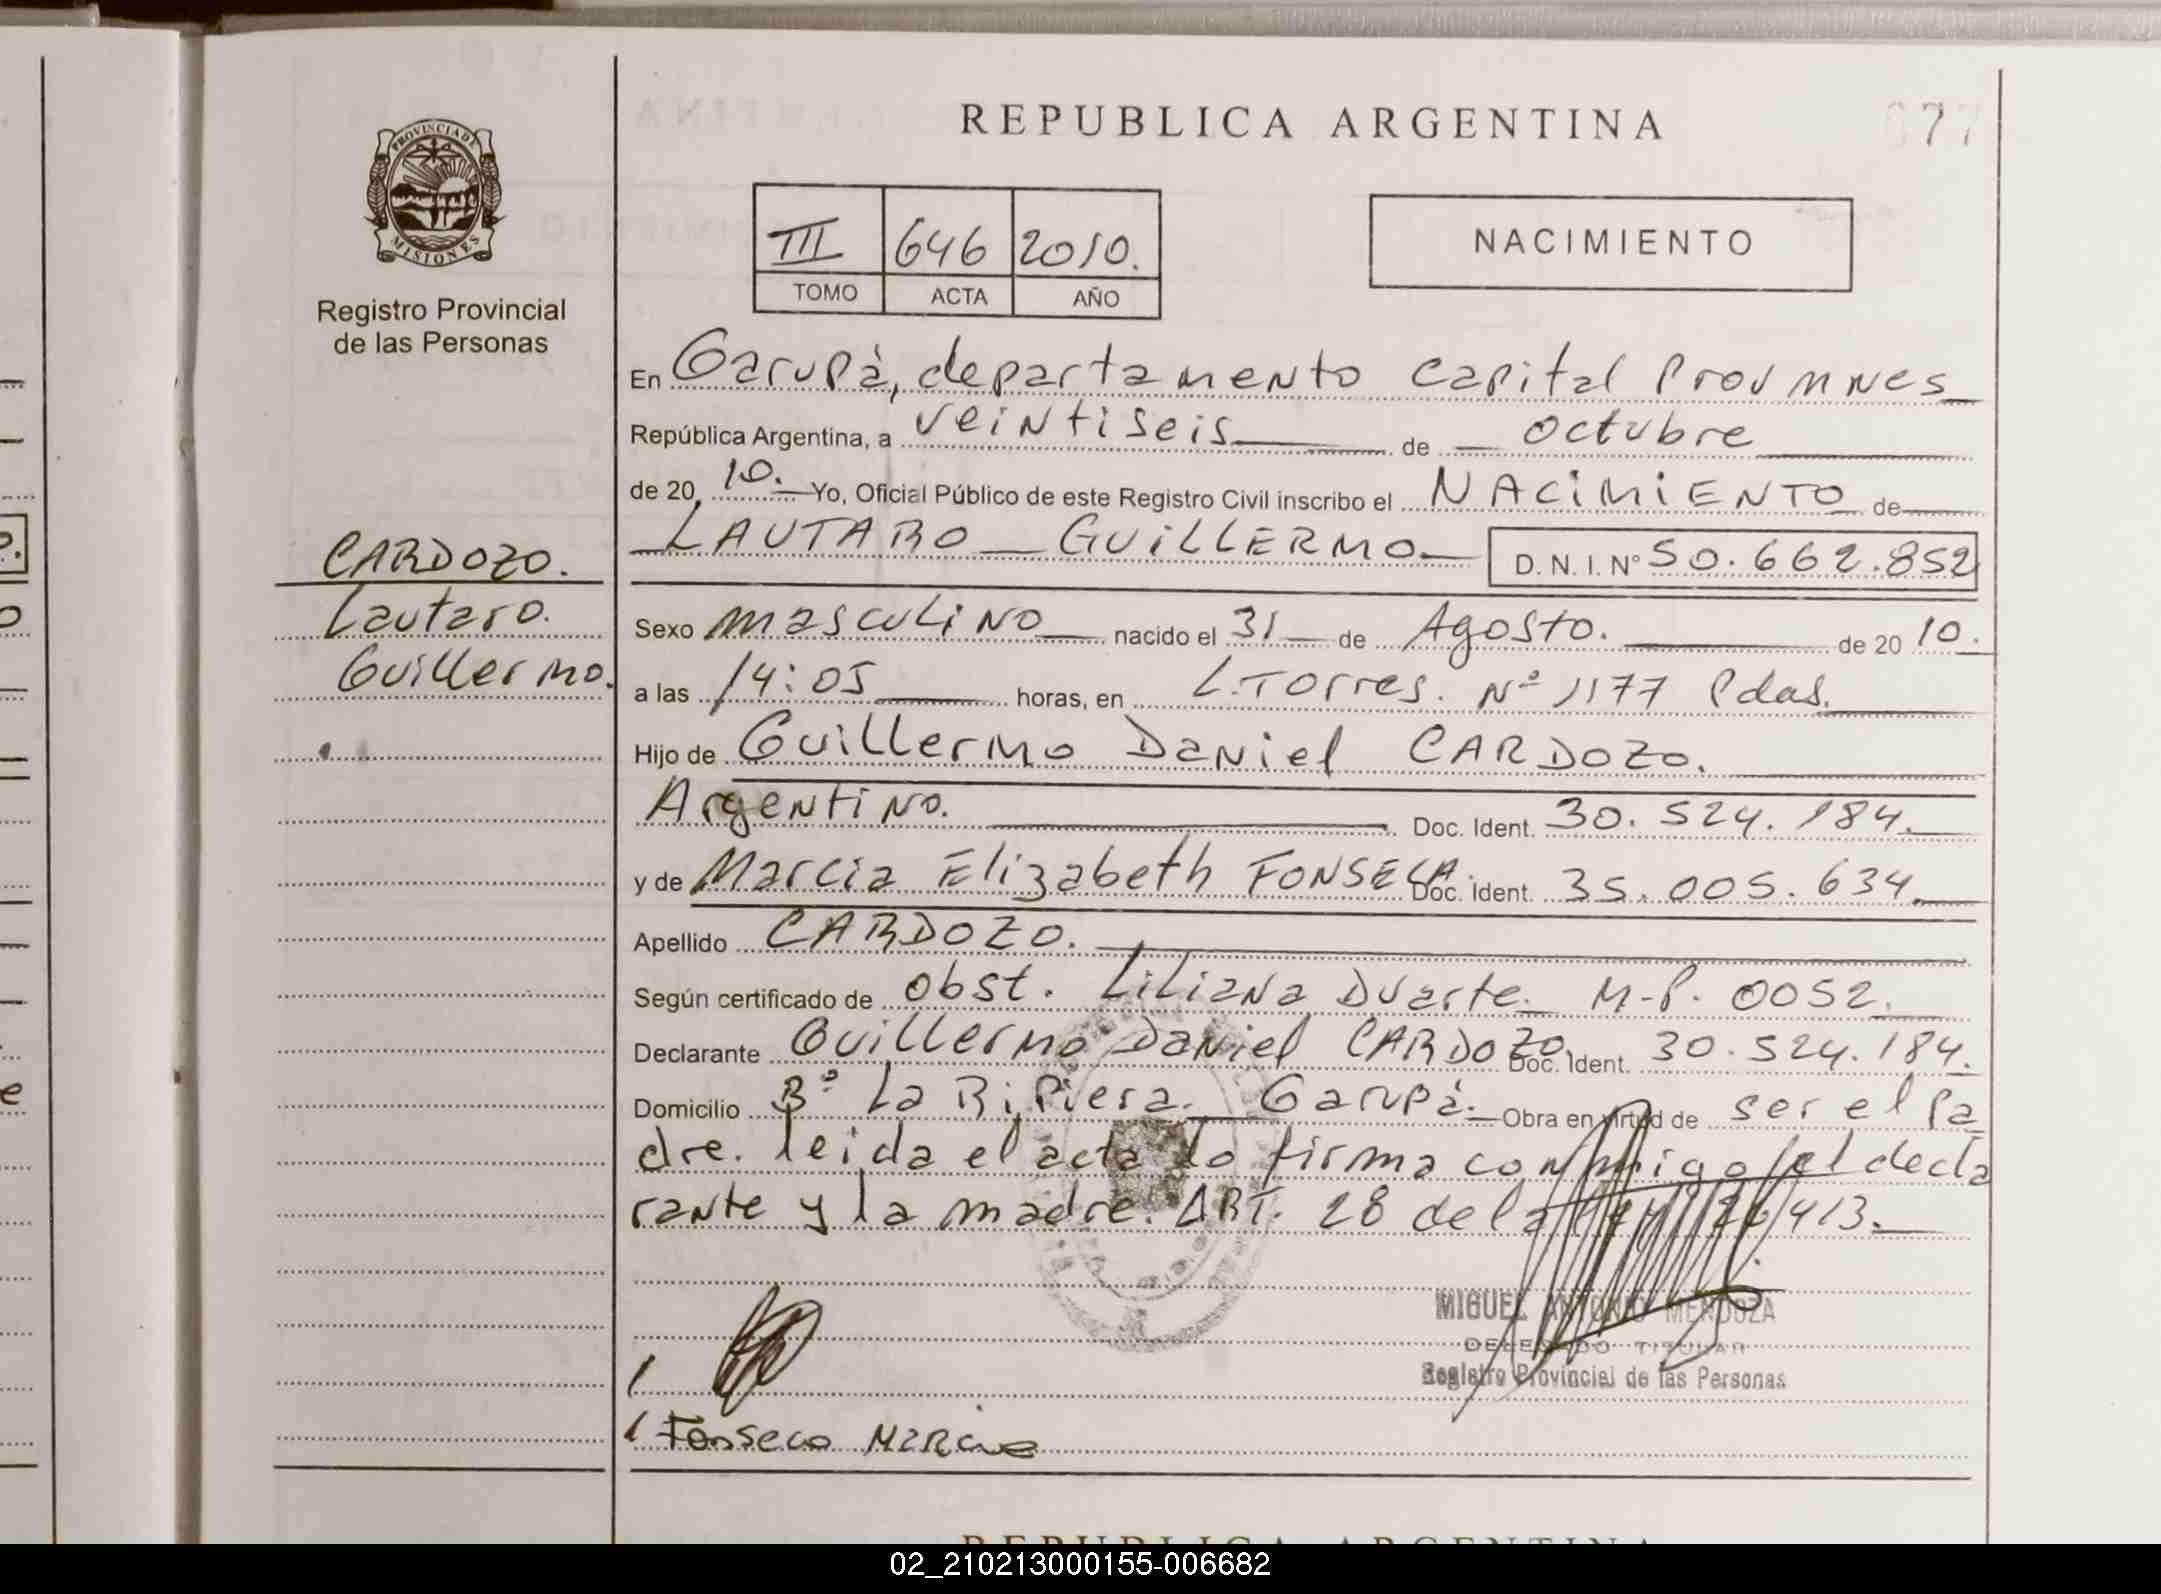 REPUBLICA ARGENTINA
677
PROVINCIA DE
MISIONES
Registro Provincial
de las Personas
III 646 2010.
TOMO ACTA AÑO
NACIMIENTO
En Garupà, departamento Capital Prov Mnes
República Argentina, a veintiseis de octubre
de 20 10. Yo, Oficial Público de este Registro Civil inscribo el NACIMIENTO de
LAUTARO GUILLERMO D. N. I. Nº 50.662.852
CARDOZO.
Lautaro.
Guillermo.
Sexo masculino nacido el 31 de Agosto. de 20 10.
a las 14:05 horas, en L. Torres. Nº 1177 Pdas.
Hijo de Guillermo Daniel CARDOZO.
Argentino. Doc. Ident. 30.524.184.
y de Marcia Elizabeth FONSECA. Doc. Ident. 35.005.634.
Apellido CARDOZO.
Según certificado de obst. Liliana Duarte. M-P. 0052.
Declarante Guillermo Daniel CARDOZO. Doc. Ident. 30.524.184.
Domicilio Bº La Ripiera. Garupà. Obra en virtud de ser el pa
dre. leida el acta lo firma conmigo el decla
rante y la madre. ART. 28 de la ley 26413.
MIGUEL ANTONIO MENDOZA
DELEGADO TITULAR
Registro Provincial de las Personas
Fonseca Marcia
REPUBLICA ARGENTINA
02_210213000155-006682